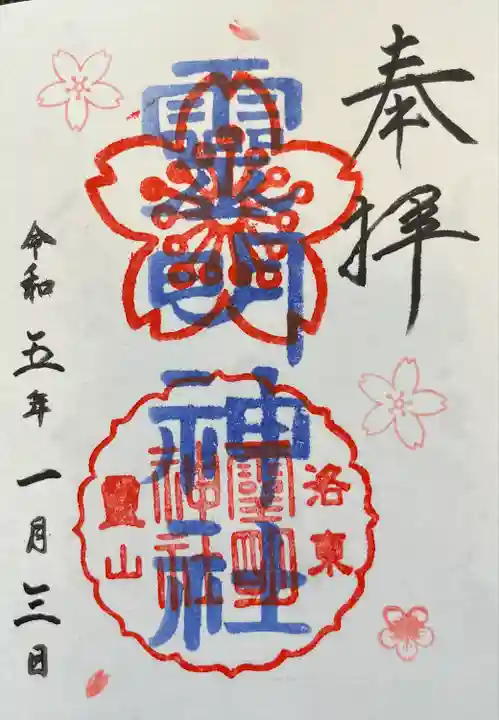 奉拝
靈明神社
洛東
靈明
神社
靈山
令和五年一月三日